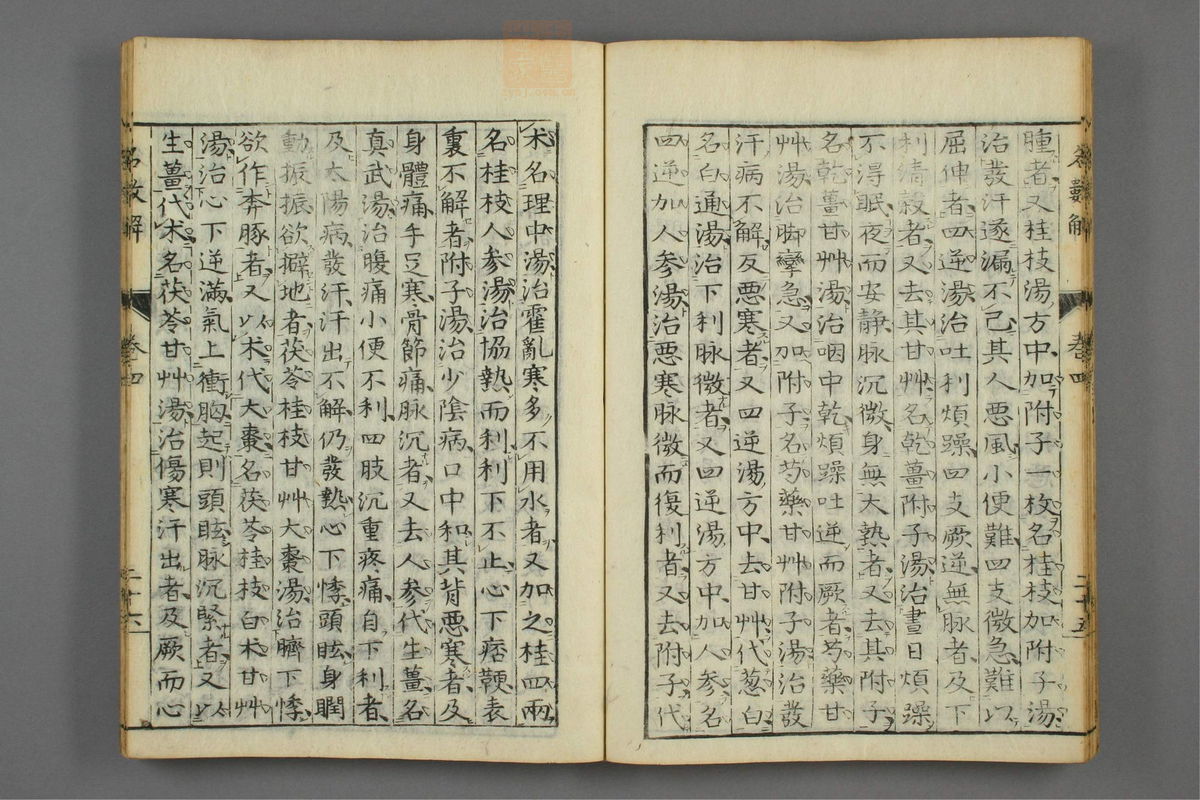 腫者又桂枝湯方中加附子一枚名桂枝加附子湯
治發汗遂漏不已其人惡風小便難四支微急難以
屈伸者四逆湯治吐利煩躁四支厥逆無脉者及下
利清穀者又去其甘艸名乾薑附子湯治晝日煩躁
不得眠夜而安静脉沉微身無大熱者又去其附子
名乾薑甘艸湯治咽中乾煩躁吐逆而厥者芍藥甘
艸湯治脚攣急又加附子名芍藥甘艸附子湯治發
汗病不解反惡寒者又四逆湯方中去甘艸代葱白
名白通湯治下利脉微者又四逆湯方中加人參名
四逆加人參湯治惡寒脉微而復利者又去附子代
术名理中湯治霍亂寒多不用水者又加之桂四兩
名桂枝人參湯治協熱而利利下不止心下痞鞕表
裏不解者附子湯治少陰病口中和其背惡寒者及
身體痛手足寒骨節痛脉沉者又去人參代生薑名
真武湯治腹痛小便不利四肢沉重疼痛自下利者
及太陽病發汗汗出不解仍發熱心下悸頭眩身瞤
動振振欲擗地者茯苓桂枝甘艸大棗湯治臍下悸
欲作奔豚者又以术代大棗名茯苓桂枝白术甘艸
湯治心下逆滿氣上衝胸起則頭眩脉沉緊者又以
生薑代术名茯苓甘艸湯治傷寒汗出者及厥而心
卷四
二十五
卷四
二十六